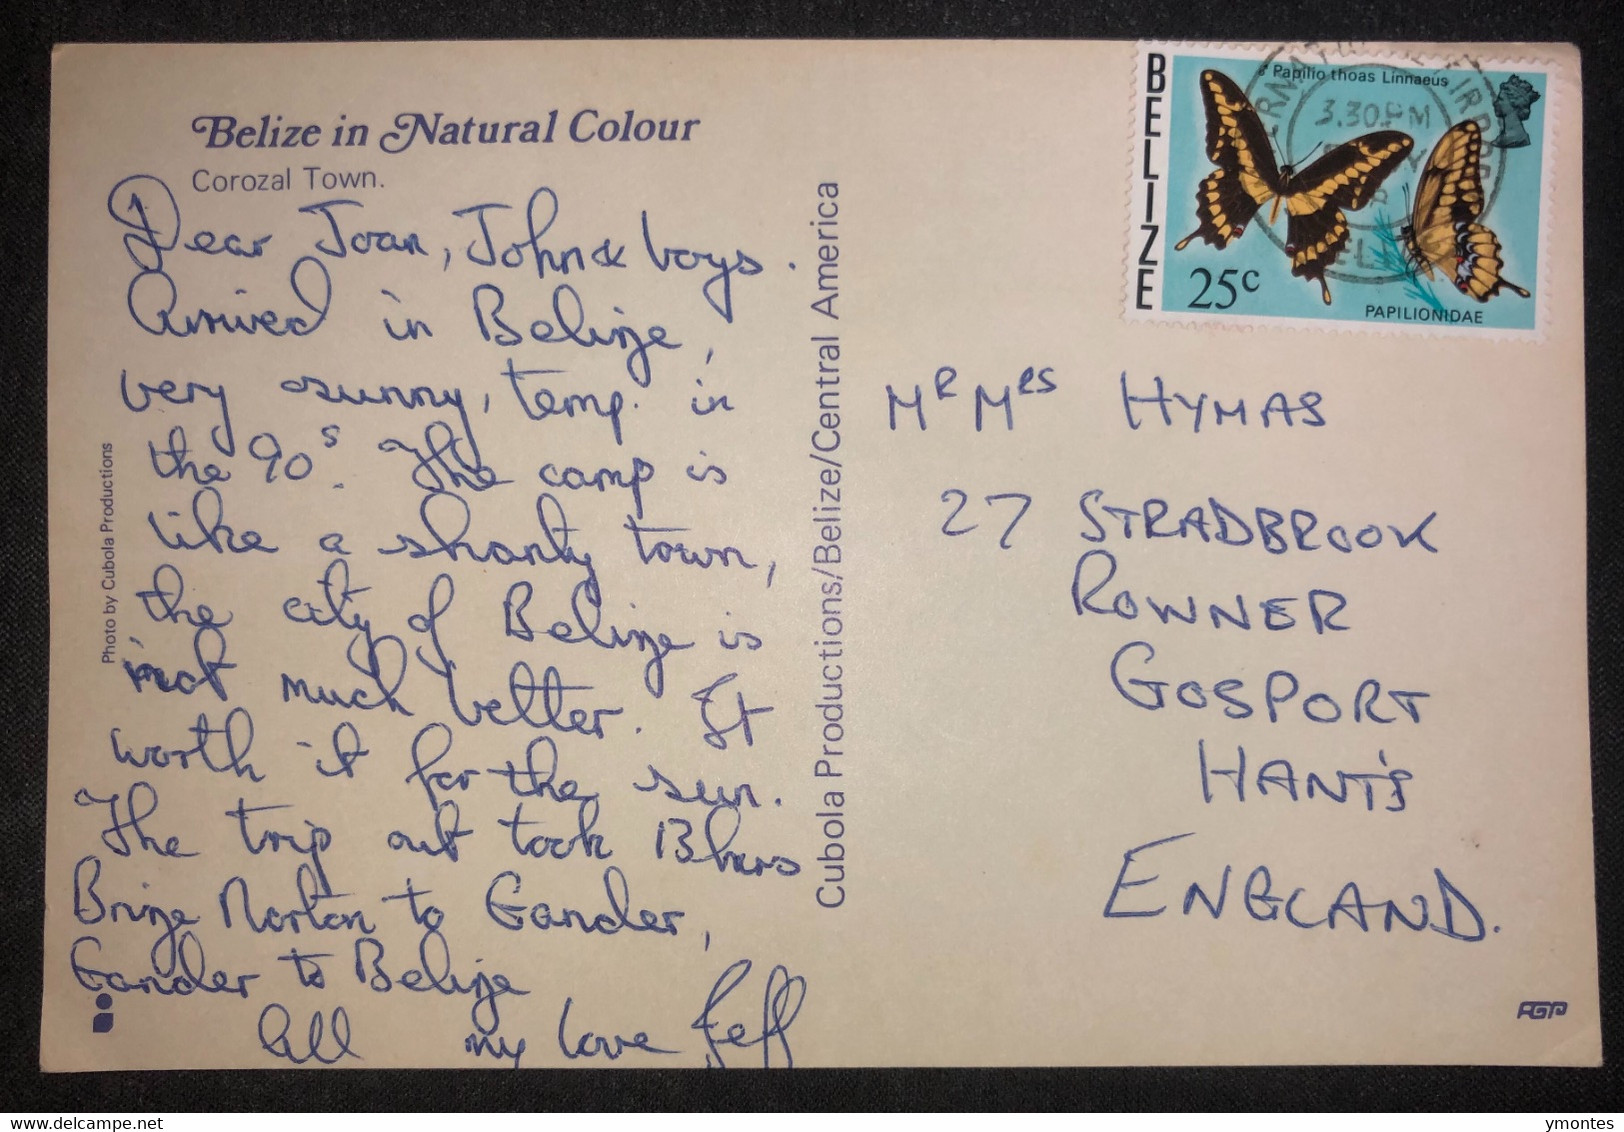 Belize in Natural Colour
Corozal Town.
Dear Joan, John & boys.
Arrived in Belize,
very sunny, temp. in
the 90s. The camp is
like a shanty town,
the city of Belize is
not much better. It
worth it for the sun.
The trip out took 13 hurs
Brize Norton to Gander,
Gander to Belize
All my love Jeff
Photo by Cubola Productions
Cubola Productions/Belize/Central America
BELIZE
♂ Papilio thoas Linnaeus
3.30PM
25c
PAPILIONIDAE
MR MRS HYMAS
27 STRADBROOK
ROWNER
GOSPORT
HANT'S
ENGLAND.
ymontes